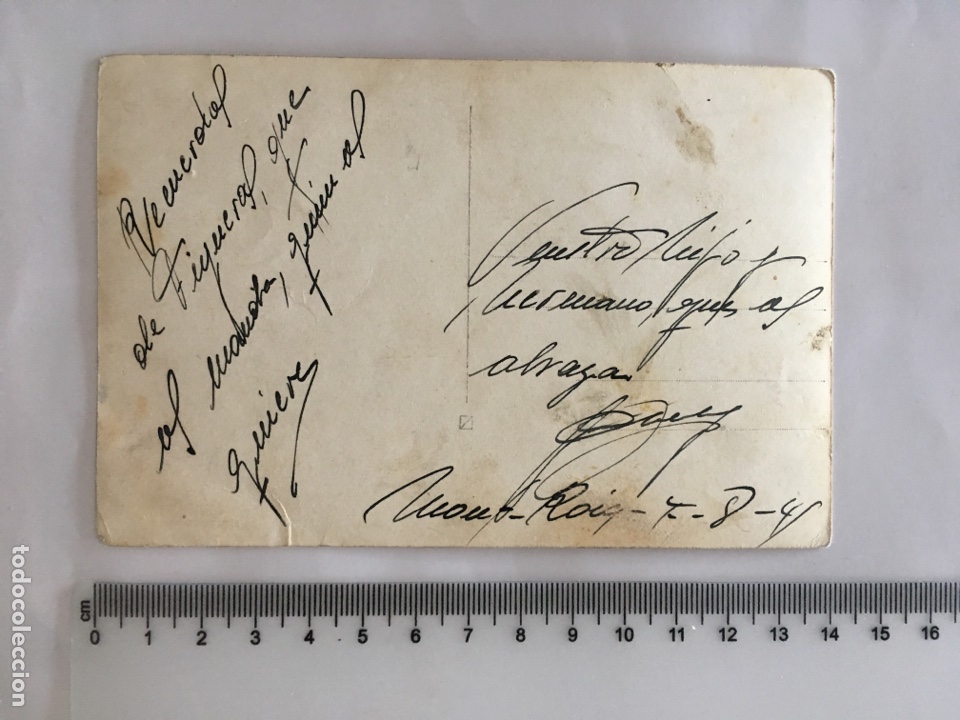 Recuerdos
de Figueras, que
os manda, quien os
quiere
Vuestro hijo y
hermano, que os
abraza
Mont-Roig - 7-8-41
cm
0 1 2 3 4 5 6 7 8 9 10 11 12 13 14 15 16
todocoleccion